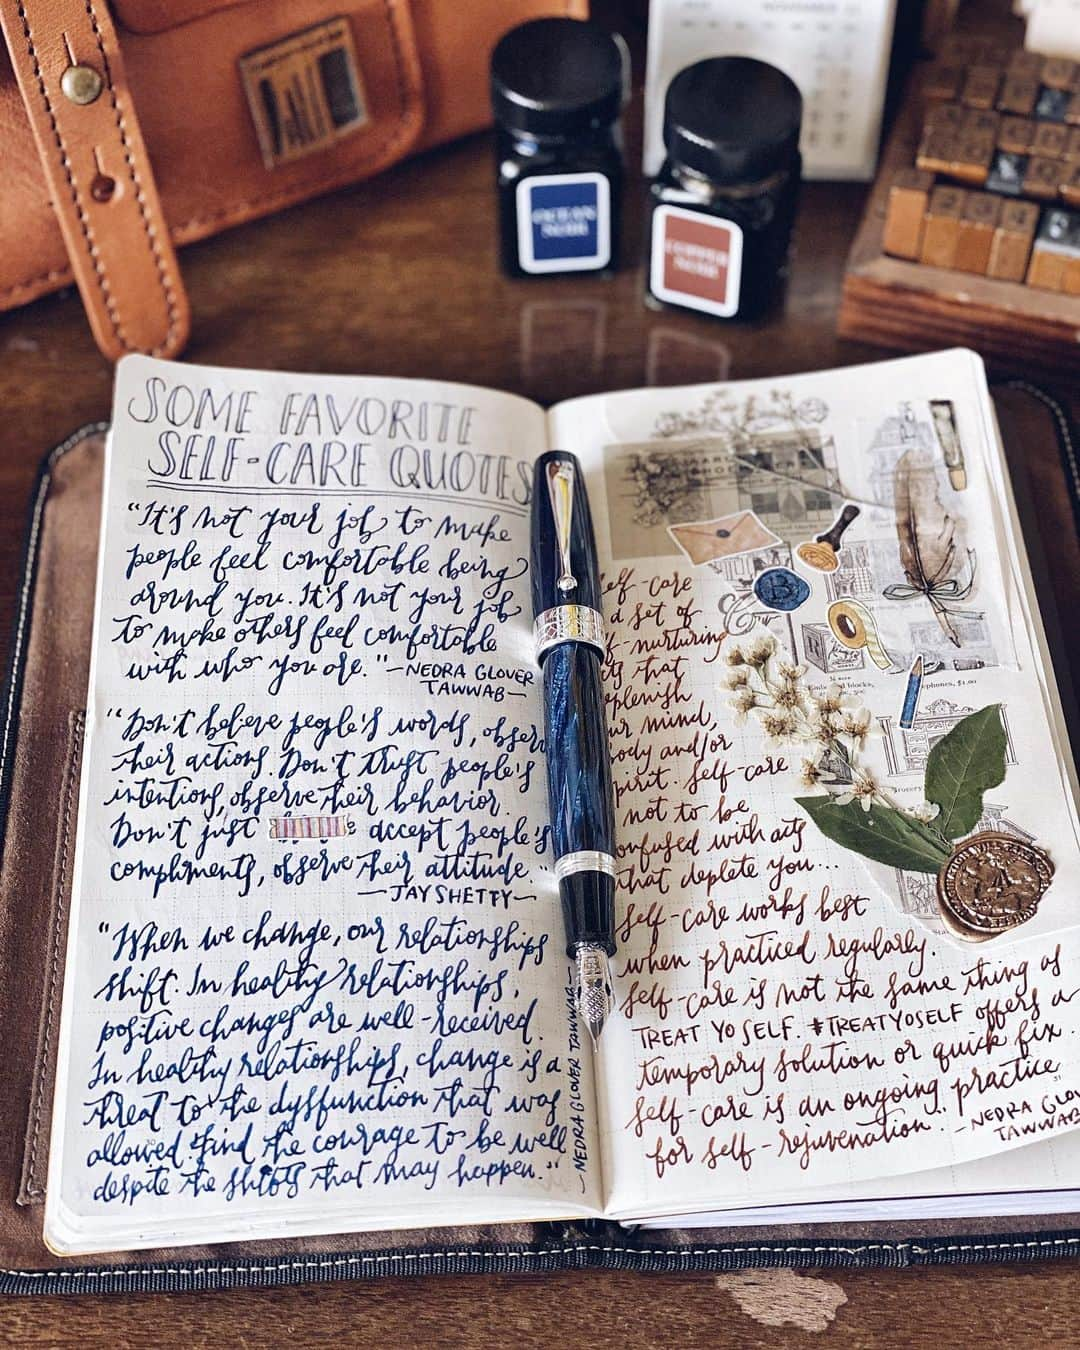 OCEAN
NOIR
COPPER
NOIR
NOVEMBER
SOME FAVORITE
SELF-CARE QUOTES
"It's not your job to make
people feel comfortable being
around you. It's not your job
to make others feel comfortable
with who you are." —NEDRA GLOVER
TAWWAB—
"Don't believe people's words, observe
their actions. Don't trust people's
intentions, observe their behavior.
Don't just accept people's
compliments, observe their attitude."
—JAY SHETTY—
"When we change, our relationships
shift. In healthy relationships,
positive changes are well-received.
In healthy relationships, change is a
threat to the dysfunction that was
allowed. Find the courage to be well
despite the shifts that may happen."
—NEDRA GLOVER TAWWAB—
elf-care
a set of
lf-nurturing
ts that
eplenish
ur mind,
ody and/or
pirit. Self-care
not to be
onfused with acts
that deplete you...
Self-care works best
when practiced regularly.
Self-care is not the same thing as
TREAT YO SELF. #TREATYOSELF offers a
temporary solution or quick fix.
Self-care is an ongoing practice
for self-rejuvenation..." —NEDRA GLOV
TAWWAB
B